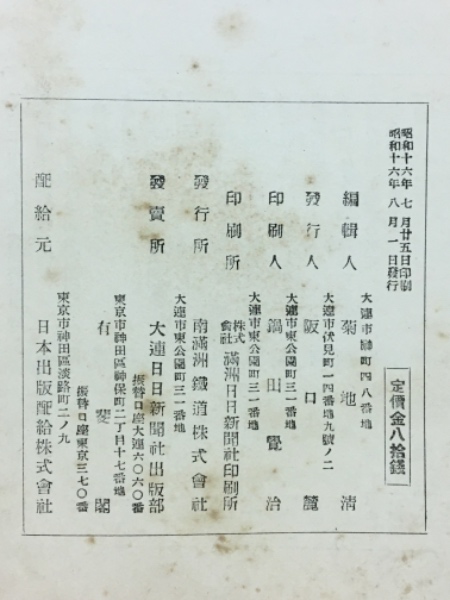 昭和十六年七月廿五日印刷
昭和十六年八月一日發行
定價金八拾錢
大連市 町四八番地
編輯人 菊地清
大連市伏見町一四番地九號ノ二
發行人 阪口
大連市東公園町三一番地
印刷人 鍋田覺治
大連市東公園町三一番地
印刷所 株式會社 滿洲日日新聞社印刷所
大連市東公園町三一番地
發行所 南滿洲鐵道株式會社
發賣所 大連日日新聞社出版部
振替口座大連六〇六〇番
東京市神田區神保町二丁目十七番地
有斐閣
振替口座東京三七〇番
東京市神田區淡路町二ノ九
配給元 日本出版配給株式會社